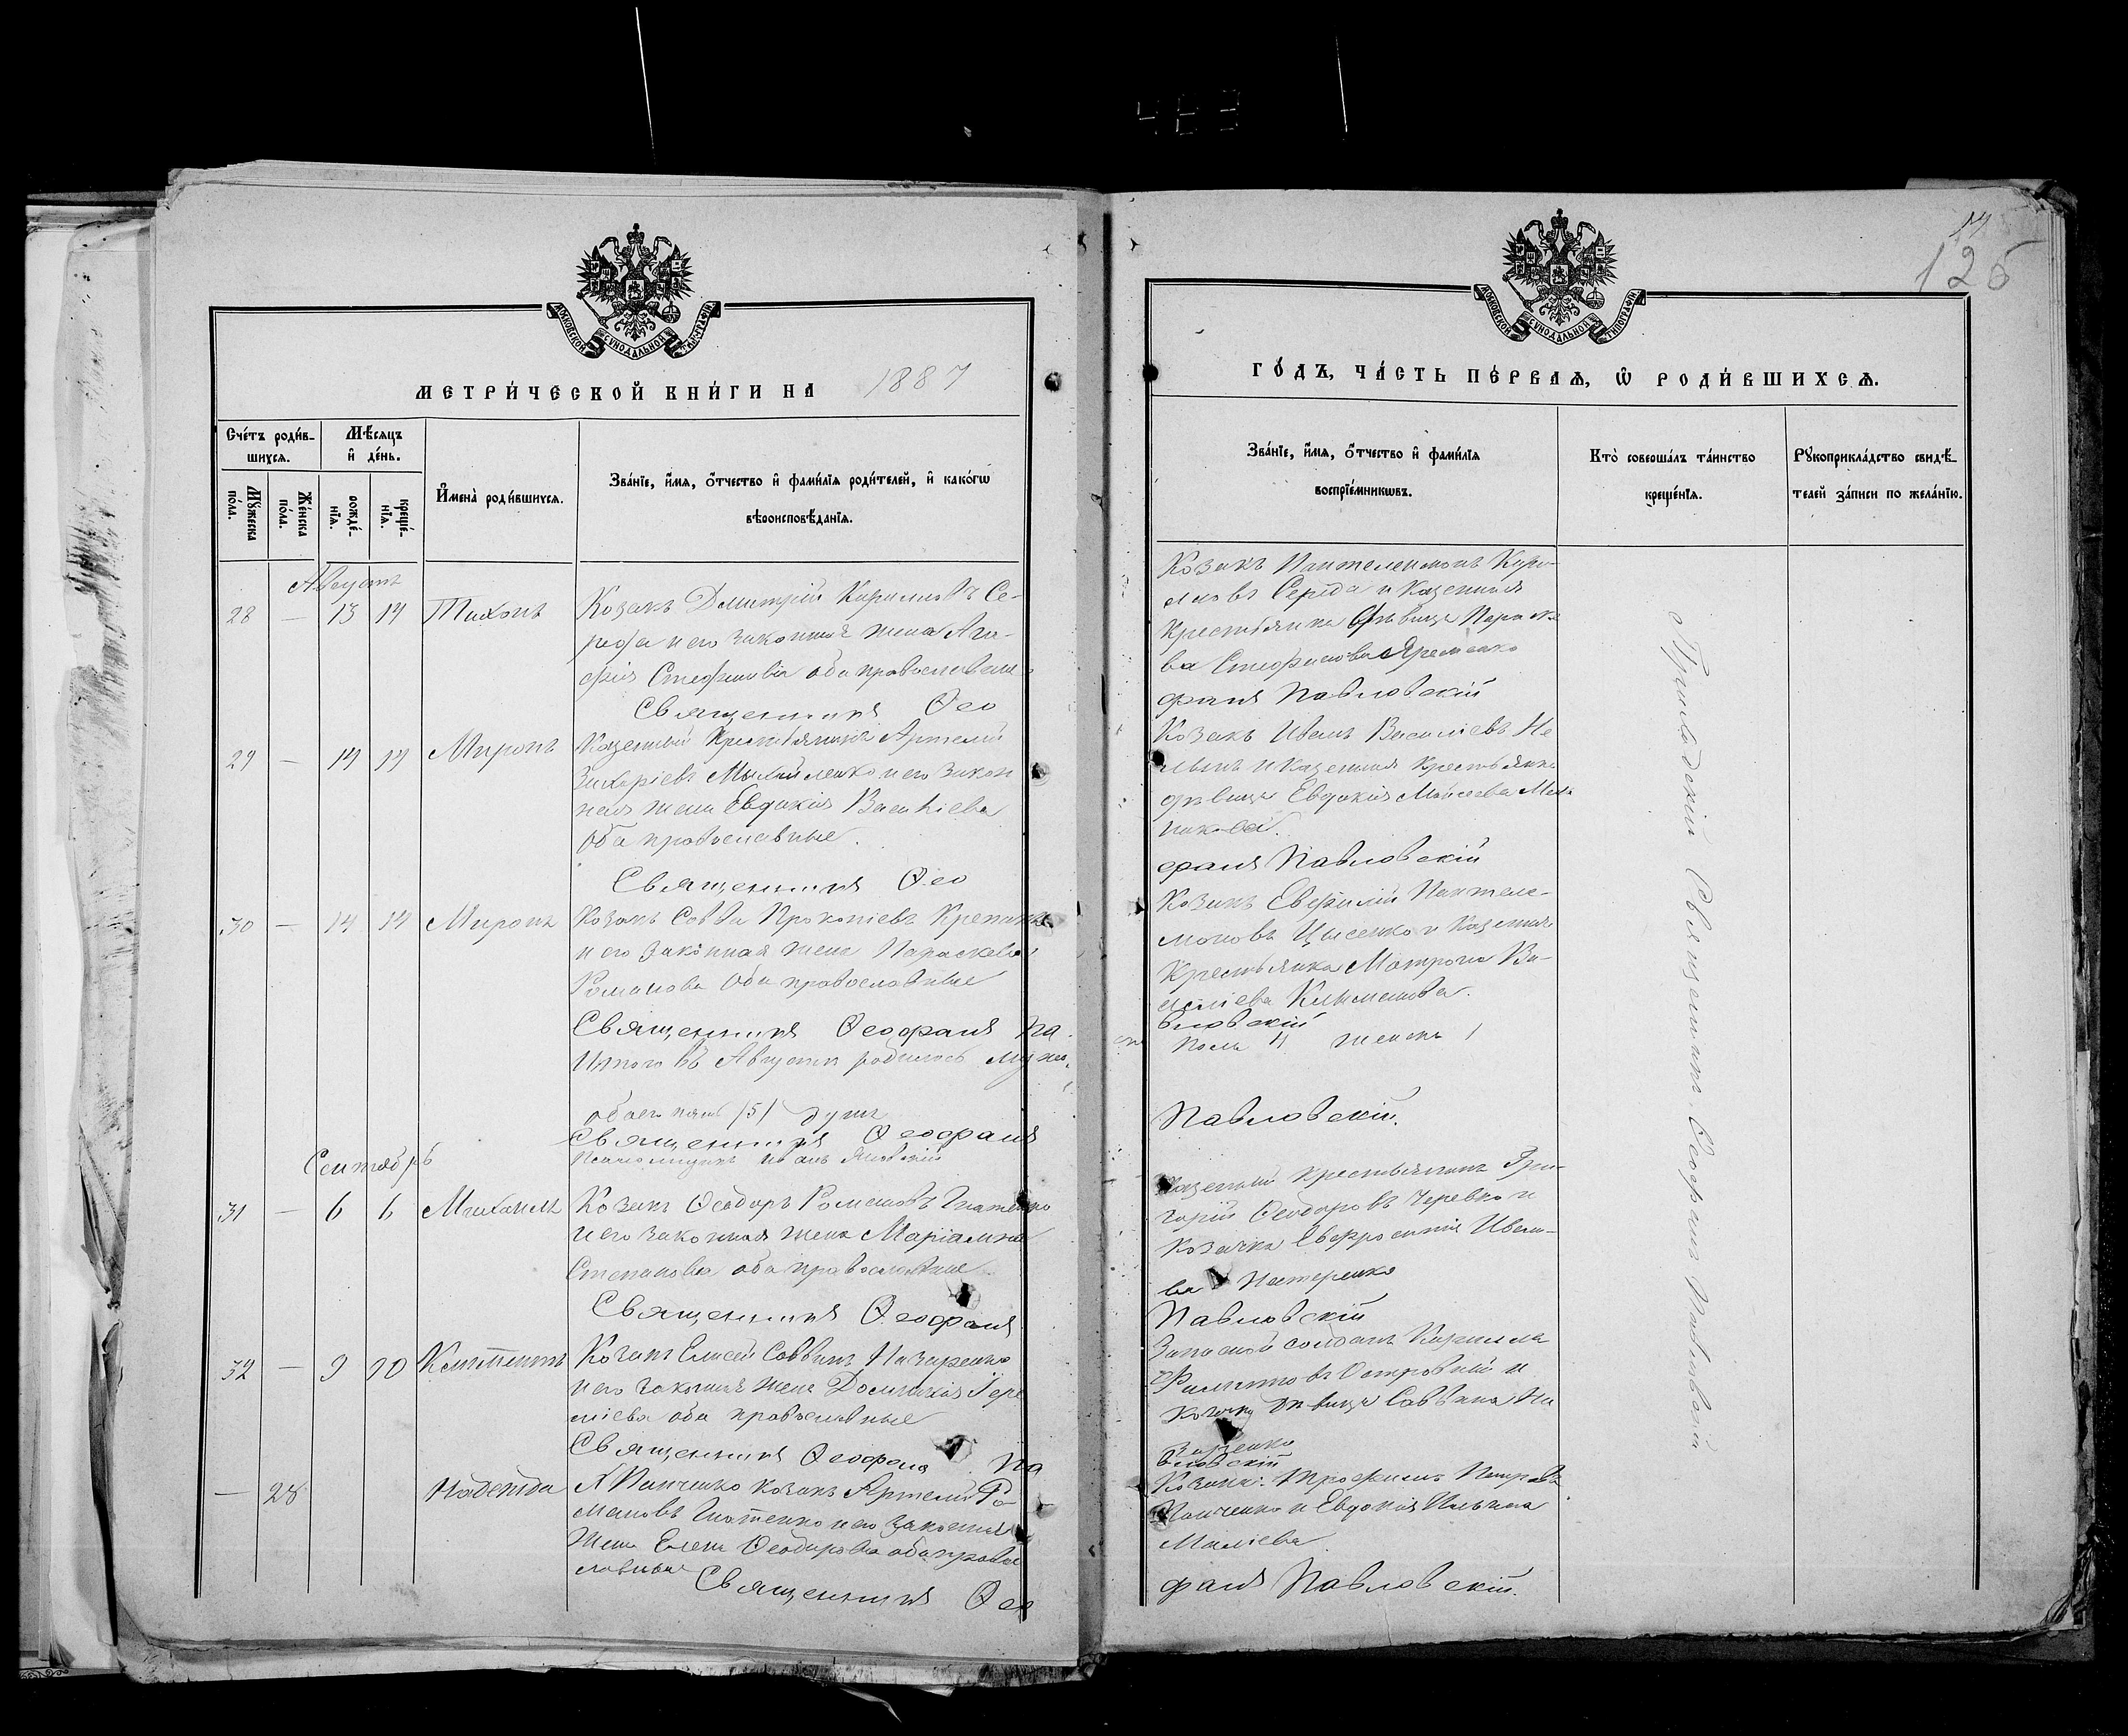 483
МОСКОВСКОЙ СѴНОДАЛЬНОЙ ТИПОГРАФІИ
МЕТРИ́ЧЕСКОЙ КНИ́ГИ НА 1887
Сче́тъ роди́в-
шихсѧ.
Мѣ́сѧцъ
и҆ де́нь.
Мꙋ́жеска
по́ла.
Же́нска
по́ла.
рожде́-
нїѧ.
креще́-
нїѧ.
И҆мена̀ роди́вшихсѧ.
Зва́нїе, и҆́мѧ, ѻ҆́тчество и҆ фами́лїѧ роди́телей, и҆ како́гѡ
вѣроисповѣ́данїѧ.
Августъ
28 — 13 14 Тихонъ
Козакъ Димитрій Кириловъ Се-
реда и его законная жена Ага-
фія Стефанова оба православные
Священникъ Ѳео
29 — 14 14 Миронъ
Казенный крестьянинъ Артемій
Захаріевъ Михайленко и его закон
ная жена Евдокія Василіева
оба православные.
Священникъ Ѳео
30 — 14 14 Миронъ
Козакъ Савва Прокопіевъ
и его законная жена Параскева
Романова оба православные
Священникъ Ѳеофанъ Па
Итого въ Августѣ родилось муж.
обоего пять /5/ душъ
Священникъ Ѳеофанъ
Псаломщикъ Иванъ
Сентябрь
31 — 6 6 Михаилъ
Козакъ Ѳеодоръ Романовъ Гнатенко
и его законная жена Маріамна
Степанова оба православные
Священникъ Ѳеофанъ
32 — 9 10
Козакъ Елисей Саввинъ Назаренко
и его законная жена Домникія Іере
міева оба православные
Священникъ Ѳеофанъ Па
— 28 Надежда
Козакъ Артемій Ро
мановъ Гнатенко и его законная
жена Елена Ѳеодорова оба право
славные
Священникъ Ѳео
14
125
МОСКОВСКОЙ СѴНОДАЛЬНОЙ ТИПОГРАФІИ
ГО́ДЪ, ЧА́СТЬ ПЕ́РВАѦ, Ѽ РОДИ́ВШИХСѦ.
Зва́нїе, и҆́мѧ, ѻ҆́тчество и҆ фами́лїѧ
воспрїе́мникѡвъ.
Кто̀ соверша́лъ та́инство
креще́нїѧ.
Рꙋкоприкла́дство свидѣ́-
телей за́писи по жела́нїю.
Козакъ Пантелеимонъ Кири-
ловъ Середа и казенная
крестьянка дѣвица Параске
ва Стефанова Яременко
фанъ Павловскій
Козакъ Иванъ Василіевъ Не
и казенная крестьянка
дѣвица Евдокія Моисеева
фанъ Павловскій
Козакъ Евфимій Пантеле-
моновъ Цысенко и казенная
крестьянка Матрона Ва-
силіева Климашова.
вловскій
пола 4 женска 1
Павловскій.
Казенный крестьянинъ Гри-
горій Ѳеодоровъ Черевко и
козачка Евфросинія Ивано-
ва Нестеренко
Павловскій
Запасной солдатъ Кирилла
Филиповъ Островный и
козачка дѣвица Саввина На
заренко
вловскій
Козаки: Трофимъ Петровъ
Панченко и Евдокія Ильина
фанъ Павловскій.
Приходскій Священникъ Ѳеофанъ Павловскій